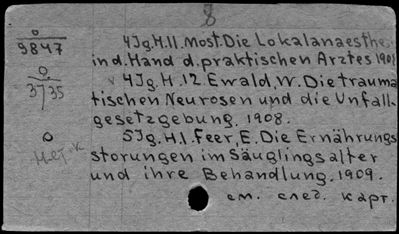 8
0
9847
4Jg.H.11. Most. Die Lokalanaesthe
in d. Hand d. praktischen Arztes 1908
0
3735
v 4Jg.H.12. Ewald, W. Die trauma
tischen Neurosen und die Unfall-
gesetzgebung. 1908.
0
Нет-к
5Jg.H.1. Feer, E. Die Ernährungs
storungen im Säuglingsalter
und ihre Behandlung. 1909.
см. след. карт.